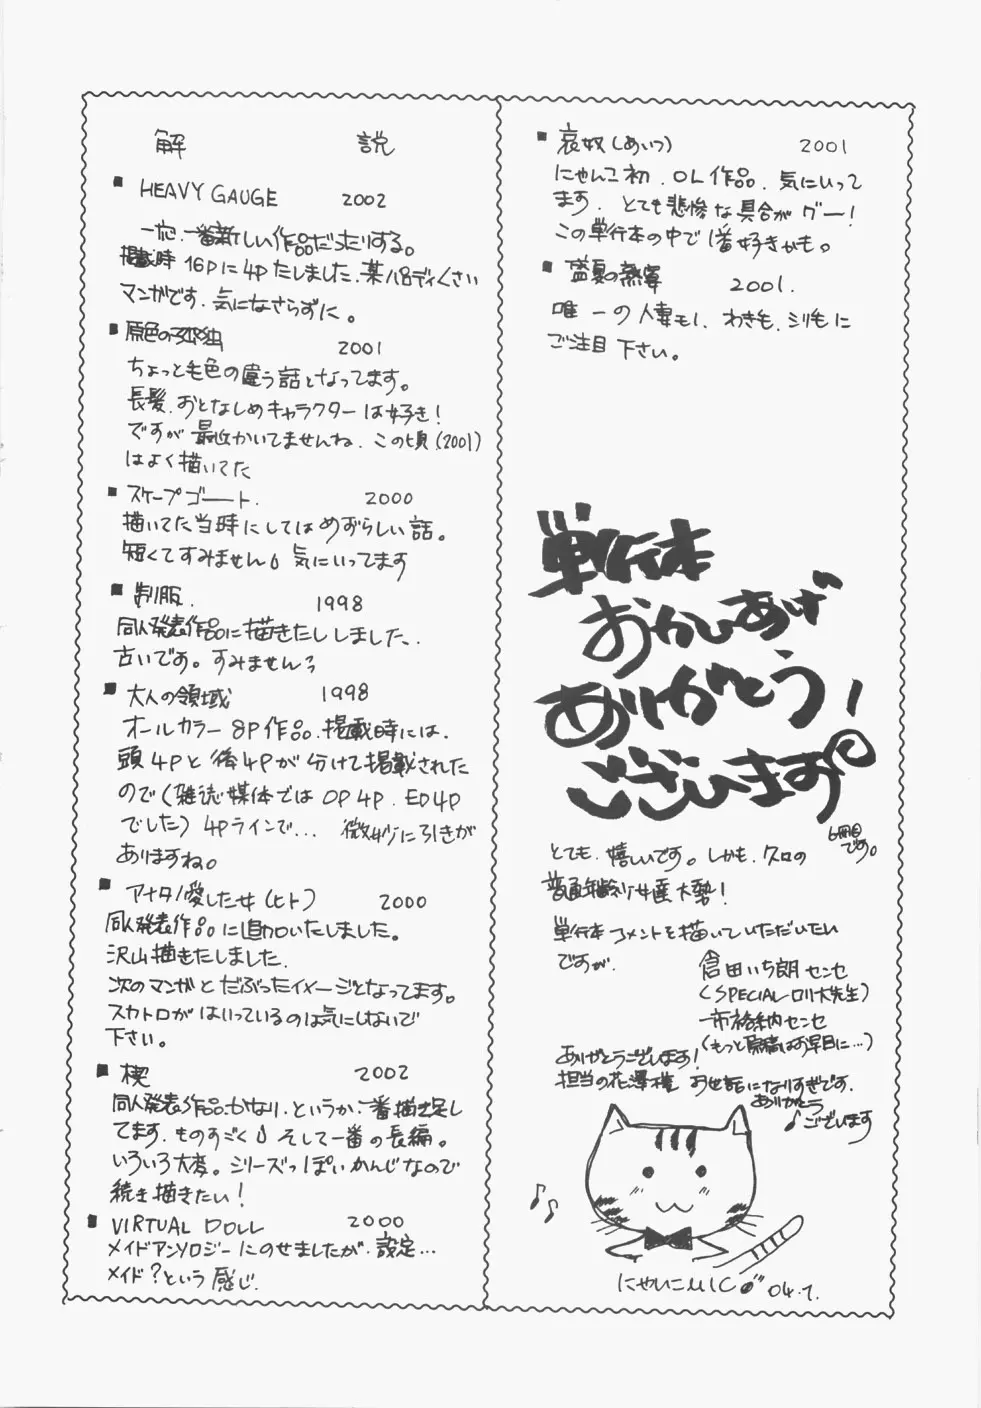 解　説
■ HEAVY GAUGE 2002
一応、一番新しい作品だったりする。
掲載時16Pに4Pたしました、某パロディくさい
マンガです。気になさらずに。
■ 原色の孤独 2001
ちょっと毛色の違う話となってます。
長髪、おとなしめキャラクターは好き！
ですが最近かいてませんね、この頃(2001)
はよく描いてた
■ スケープゴート. 2000
描いてた当時にしてはめずらしい話。
短くてすみません 気にいってます
■ 制服. 1998
同人発表作品に描きたししました、
古いです。すみません
■ 大人の領域 1998
オールカラー8P作品、掲載時には、
頭4Pと後4Pが分けて掲載された
ので(雑誌媒体ではOP4P、ED4P
でした)4Pラインで… 微妙にひきが
ありますね。
■ アナタノ愛した女(ヒト) 2000
同人発表作品に追加いたしました。
沢山描きたしました、
次のマンガとだぶったイメージとなってます。
スカトロがはいっているのは気にしないで
下さい。
■ 楔 2002
同人発表作品、かなり、というか、一番描き足し
てます、ものすごく そして一番の長編。
いろいろ大変。シリーズっぽいかんじなので
続き描きたい！
■ VIRTUAL DOLL 2000
メイドアンソロジーにのせましたが、設定…
メイド？という感じ.
■ 哀奴(あいつ) 2001
にゃんこ初、OL作品、気にいって
ます、とても悲惨な具合がグー！
この単行本の中で1番好きかも。
■ 盛夏の熱宴 2001.
唯一の人妻もし、わき毛、シリ毛に
ご注目下さい。
単行本
おかいあげ
ありがとう！
ございます
6冊目
です。
とても、嬉しいです。しかも、クロの
普通年齢の女達大勢！
単行本コメントを描いていただいたい
ですが、
倉田いち朗センセ
(SPECIALロリ大先生)
一市裕納センセ
(もっと原稿はお早目に…)
ありがとうございます！
担当の花澤様 お世話になりすぎです、
ありがとう
♪ございます
にゃんこMIC 04.7.